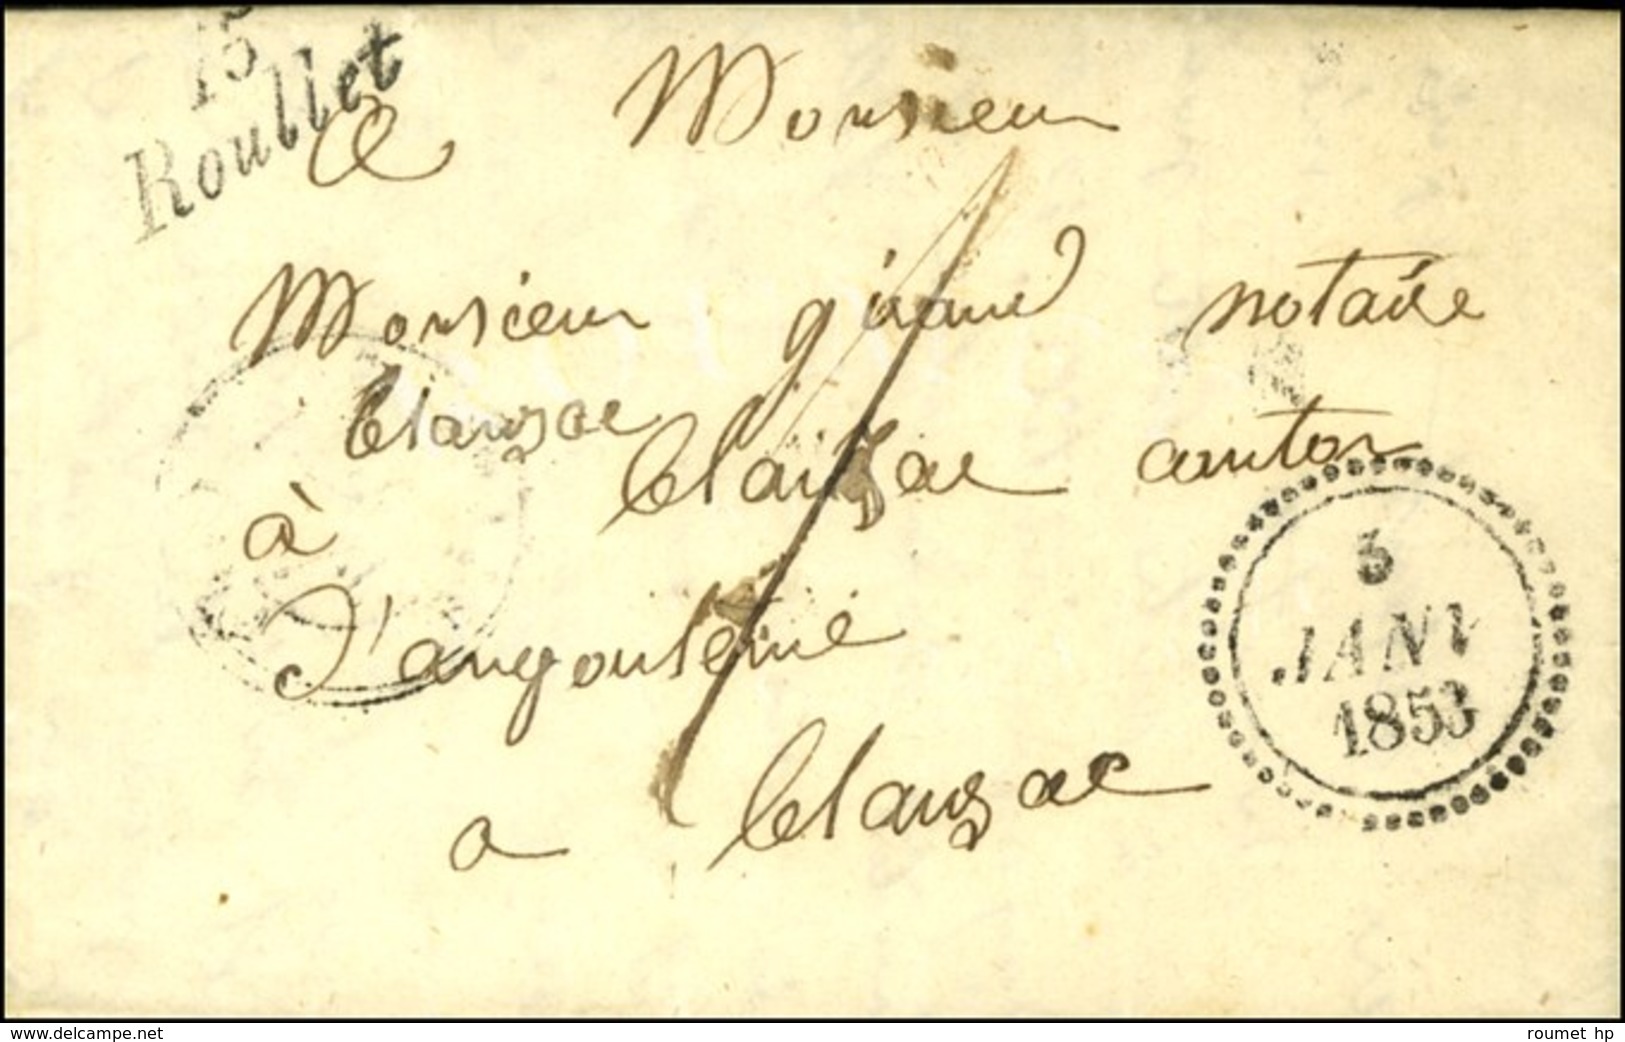 15
Roullet
A Monsieur
Monsieur giraud notaire
Clauzac
à Clauzac canton
d'angouleme
a Clauzac
5
JANV
1853
www.delcampe.net
roumet hp